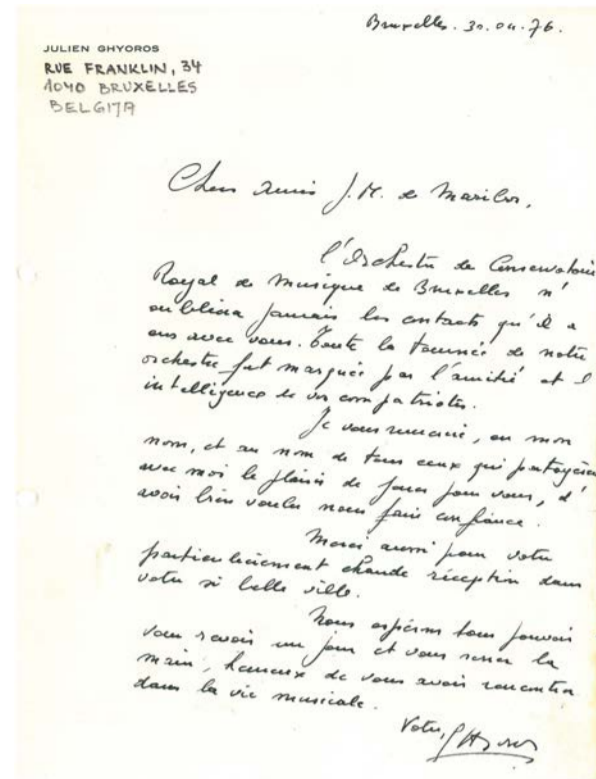 Bruxelles. 30.04.76.
JULIEN GHYOROS
RUE FRANKLIN, 34
1040 BRUXELLES
BELGITA
Chers amis J.M. de
l'Orchestre de Conservatoire
Royal de Musique de Bruxelles n'
oubliera jamais les contacts qu'il a
eus avec vous. Toute la tournée de notre
orchestre fut marquée par l'amitié et l'
intelligence de vos compatriotes.
Je vous remercie, en mon
nom, et au nom de tous ceux qui partagèrent
avec moi le plaisir de jouer pour vous, d'
avoir bien voulu nous faire confiance.
Merci aussi pour votre
particulièrement chaude réception dans
votre si belle ville.
Nous espérons tous pouvoir
vous revoir un jour et vous serrer la
main, heureux de vous avoir rencontré
dans la vie musicale.
Votre,